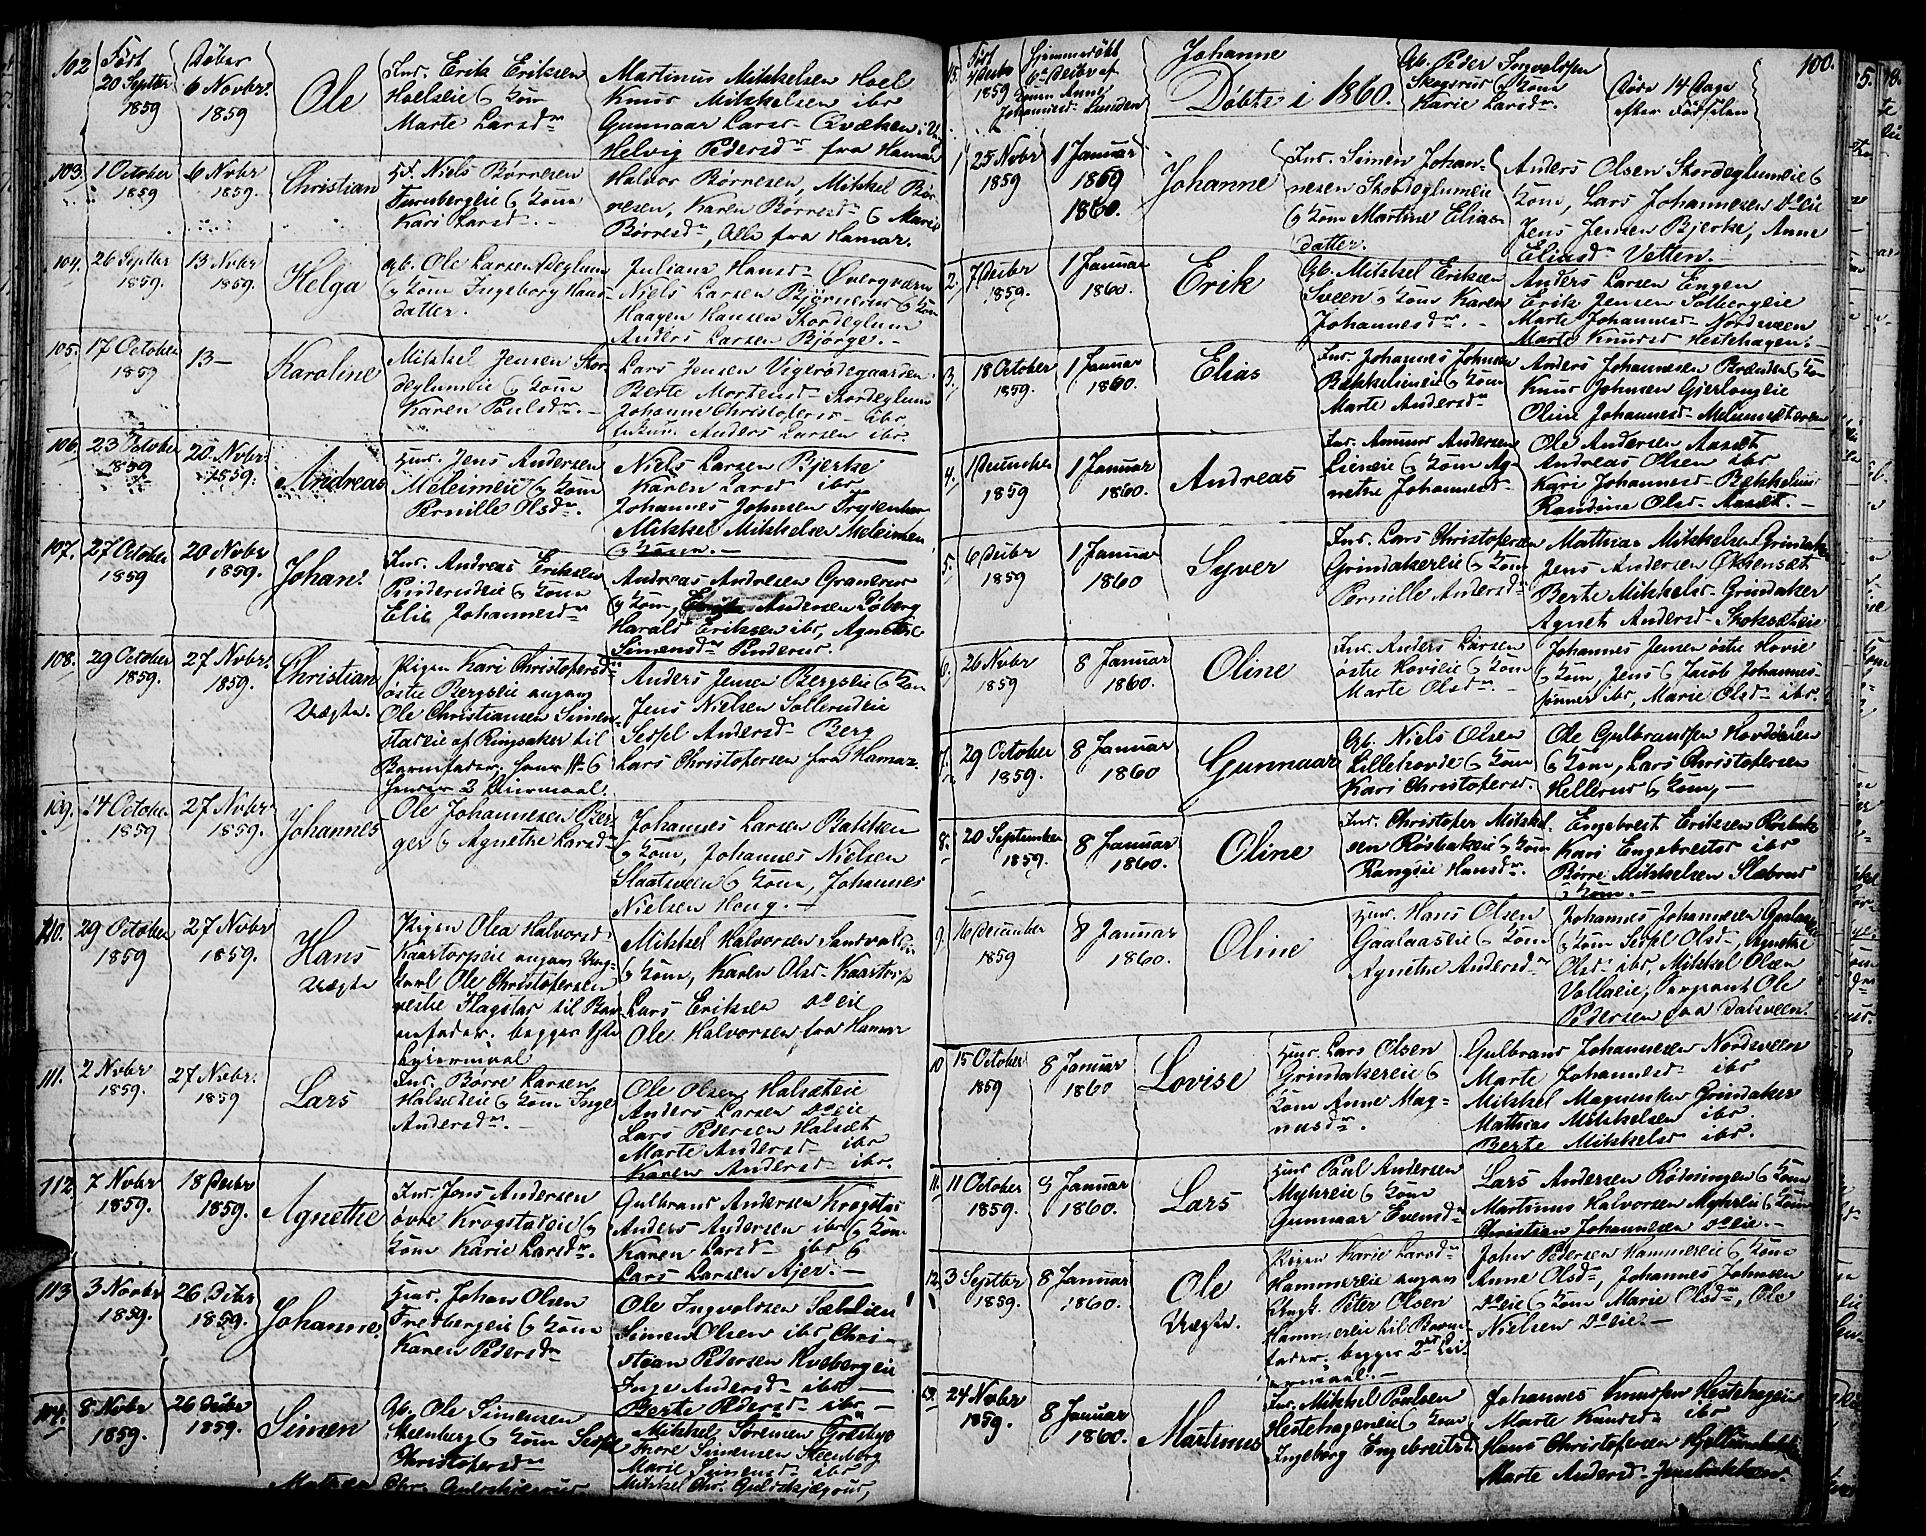 102 Født 20 Septbr 1859
Døber 6 Novbr. 1859
Ole
Ins. Erik Eriksen
Hoelseie & Kone
Marte Larsdr
Martinus Mikkelsen Hoel
Knud Mikkelsen ibd
Gunnaar Larsd
Helvig Pedersdr fra Hamar
103. 1 October 1859
6 Novbr 1859.
Christian
Niels Børresen
Furubergeie & Kone
Kari Larsdr. -
Halvor Børresen, Mikkel Bør-
resen, Karen Børresdr & Marie
Børresdr, Alle fra Hamar.
104. 26 Septbr 1859.
13 Novbr 1859.
Helga
Gb. Ole Larsen Deglum
& Kone Ingeborg Hans-
datter.
Juliane Hansd- Øvergvern
Niels Larsen Bjørnerud & Kone
Haagen Hansen Skordeglum
Anders Larsen Bjørge. -
105. 17 October 1859
13 -
Karoline
Mikkel Jensen Skor-
deglumeie & Kone
Karen Paulsdr. -
Lars Jensen Vigerødegaarden
Berte Mortensd- Skordeglum
Johanne Christofersd- ibd.
Anders Larsen ibd.
106. 23 October 1859
20 Novbr. 1859.
Andreas
Huus. Jens Andersen
Meleimeie & Kone
Pernille Olsdr.
Niels Larsen Bjerke
Karen Larsd ibd
Johannes Johnsen Frydenhu
Mikkel Mikkelsen Meleimhen
& Kone. -
107. 27 October 1859
20 Novbr 1859.
Johan.
Ins. Andreas Eriksen
Pinderudeie & Kone
Elie Johannesdr
Andreas Andresen Granerud
& Kone, Andersen Røberg
Harald Eriksen ibd, Agnethe
Simensdr Pinderud.
108. 29 October 1859.
27 Novbr. 1859.
Christian
Uægte.
Pigen Kari Christofersdr
østre Bergseie angav
Ole Christiansen Simen-
stadeie af Ringsaker til
Barnefader. hans No 6
hendes 2 Leiermaal.
Anders Jensen Bergseie & Kone
Jens Nielsen Sollerudeie
Sespel Andersd- Berg
Lars Christofersen fra Hamar.
109. 14 October 1859
27 Novbr 1859.
Johannes
Ole Johannesen Ber-
ger & Agnethe Larsdr
Johannes Larsen Bakken
& Kone, Johannes Nielsen
Slaatsveen & Kone, Johannes
Nielsen Houg. -
110. 29 October 1859
27 Novbr 1859.
Hans
Uægte
Pigen Olea Halvorsd-
Kaartorpeie angav Ung-
karl Ole Christofersen
vestre Flagstad til Bar-
nefader. begges 1ste
Leiermaal
Mikkel Halvorsen Sandvold
& Kone, Karen Olsd- Kaartorp
Lars Eriksen Do eie
Ole Halvorsen fra Hamar
111. 2 Novbr 1859.
27 Novbr. 1859
Lars
Ins. Børre Larsen
Halseteie & Kone Inge
Andersdr. -
Ole Olsen Halseteie
Anders Larsen Do eie
Lars Pedersen Halsæt
Marte Andersd ibd
Karen Andersd- ibd.
112. 7 Novbr 1859.
18 Decbr 1859.
Agnethe
Ins. Jens Andersen
øvre Krogstadeie &
Kone Karie Larsdr.
Gulbrand Andersen Krogstad
Anders Andersen ibd & Kone
Karen Larsd- ibd &
Lars Larsen Ajer. -
113 3 Novbr 1859.
26 Decbr 1859.
Johanne.
Huus. Johan Olsen
Fredbergeie & Kone
Karen Pedersdr
Ole Ingvoldsen Sælilien
Simen Olsen ibd Chri-
stian Pedersen Hvebergeie
Inge Andersdr- ibd -
Berte Pedersd- ibd -
114. 8 Novbr 1859.
26 Decbr 1859.
Simen
Gb. Ole Simensen
Steenberg & Kone Sespel
Christofersdr
Mikkel Sørensen Godskye
Tore Simensen Steenberg
Marie Simensd- ibd
Mikkel Chr. Gulskjegrud,
Mathea Chr. Gulskjegrud
15. Født 4 Decbr 1859
Hjemmedøbt
6te Decbr af
Konen Anne
Johannesd- Lunden
Johanne
Gb. Peder Ingvaldsen
Skogsrud & Kone
Marie Larsdr.
Døde 14 Dage
efter Fødselen
100.
Døbte i 1860.
1 25 Novbr 1859
1 Januar 1869
1860.
Johanne
Ins. Simen Johan-
nesen Skordeglumeie
& Kone Martine Elias-
datter.
Anders Olsen Skordeglumeie &
Kone, Lars Johannesen Do eie
Jens Jensen Bjerke, Anne
Eliasd- Vetten. -
2. 7 Decbr 1859.
1 Januar 1860.
Erik
Gb. Mikkel Eriksen
Sveen & Kone Karen
Johannesdr. -
Anders Larsen Engen
Erik Jensen Solbergeie
Marte Johannesd- Nordsveen
Marte Knudsd Hestehagen.
3. 18 October 1859.
1 Januar 1860.
Elias
Ins. Johannes Johnsen
Bækkelieneie & Kone
Marte Andersdr
Anders Johannesen Brænden & Kone
Knud Johnsen Gjerlougeie
Oline Johannesd- Meleimsæteren
4. 1 December 1859
1 Januar 1860.
Andreas
Ins. Amund Andersen
Lieneie & Kone Ag-
nethe Johannesd-
Ole Andersen Aasæt
Andreas Olsen ibd
Kari Johannesd- Bækkeliend
Randine Olsd- Aasæt. -
5. 6 Decbr 1859
1 Januar 1860
Syver
Ins. Lars Christofersen
Grindakereie & Kone
Pernille Andersdr
Mathias Mikkelsen Grindaker
Jens Andersen Oksensæt
Berte Mikkelsd- Grindaker
Agneth Andersd- Skoksæteie
6. 26 Novbr 1859
8 Januar 1860.
Oline
Ins. Anders Larsen
østre Hovieie & Kone
Marte Olsdr. -
Johannes Jensen østre Hovie
& Kone, Jens & Jacob Johannes-
sønner ibd, Marie Olsd- ibd.
7. 29 October 1859.
8 Januar 1860
Gunnaar
Gb. Niels Olsen
Lillehovde & Kone
Kari Christofersd.
Ole Gulbrandsen Hovdelien
& Kone, Lars Christofersen
Hellerud & Kone, -
8. 20 September 1859.
8 Januar 1860.
Oline
Ins. Christofer Mikkel-
sen Røsbakeie & Kone
Rangdie Hansdr.
Engebret Eriksen Røsbak
Kari Engebretsd ibd
Børre Mikkelsen Slaberud
& Kone. -
9. 16 December 1859
8 Januar 1860.
Oline
Huus. Hans Olsen
Gaalaaseie & Kone
Agnethe Andersdr
Johannes Johannesen Gaalaas
& Kone Sespel Olsd-, Agnethe
Olsd- ibd, Mikkel Olsen
Vollaeie, Sergeant Ole
Pedersen paa Dalsveen.
10 15 October 1859
8 Januar 1860
Lovise
Huus. Lars Olsen
Grindakereie &
Kone Anne Mag-
nusdr.
Gulbrand Johannesen Nordsveen
Marte Johannesd- ibd
Mikkel Magnussen Grindaker
Mathias Mikkelsen ibd.
Berte Mikkelsd ibd.
11. 11 October 1859.
8 Januar 1860.
Lars
Huus Paul Andersen
Myhreie & Kone
Gunnaar Evensdr
Lars Andersen Rødningen & Kone
Martinus Halvorsen Myhreie & Kone
Christian Johannesen Do eie. -
12. 3 Septbr 1859.
8 Januar 1860.
Ole
Uægte.
Pigen Karie Larsdr
Hammereie angav
Ungk. Peter Olsen
Hammereie til Barne-
fader. begges 2det Lei-
ermaal. -
John Pedersen Hammereie & Kone
Anne Olsdr, Johannes Johnsen
Do eie & Kone Marie Olsdr, Ole
Nielsen Do eie. -
13. 24 Novbr 1859.
8 Januar 1860.
Martinus
Ins. Mikkel Paulsen
Hestehageneie & Kone
Ingeborg Engebretsd
Johannes Knudsen Hestehageneie
Marte Knudsd- ibd
Hans Christofersen
Marte Andersd-